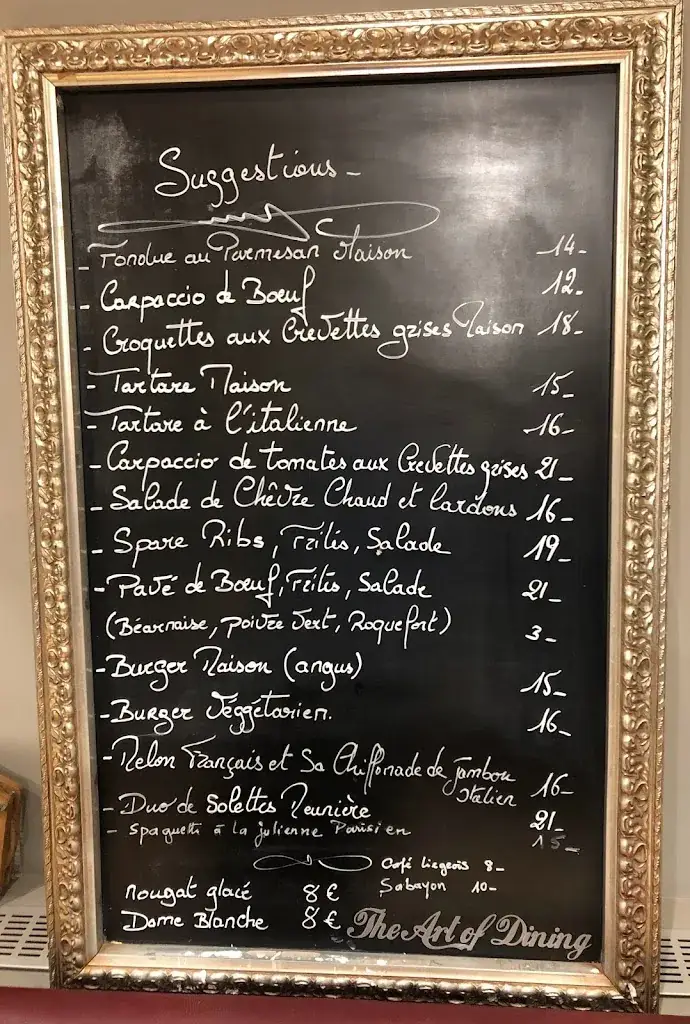 Suggestions -
- Fondue au Parmesan Maison 14-
- Carpaccio de Boeuf 12-
- Croquettes aux Crevettes grises Maison 18-
- Tartare Maison 15-
- Tartare à l'italienne 16-
- Carpaccio de tomates aux Crevettes grises 21-
- Salade de Chêvre Chaud et lardons 16-
- Spare Ribs, Frites, Salade 19-
- Pavé de Boeuf, Frites, Salade 21-
(Béarnaise, poivre vert, Roquefort) 3-
- Burger Maison (angus) 15-
- Burger Véggétarien. 16-
- Melon Français et Sa Chiffonade de Jambon
Italien 16-
- Duo de Solettes Meunière 21-
- Spaguetti à la julienne Parisien 15-
Café liegeois 8-
Sabayon 10-
Nougat glacé 8€
Dame Blanche 8€
The Art of Dining